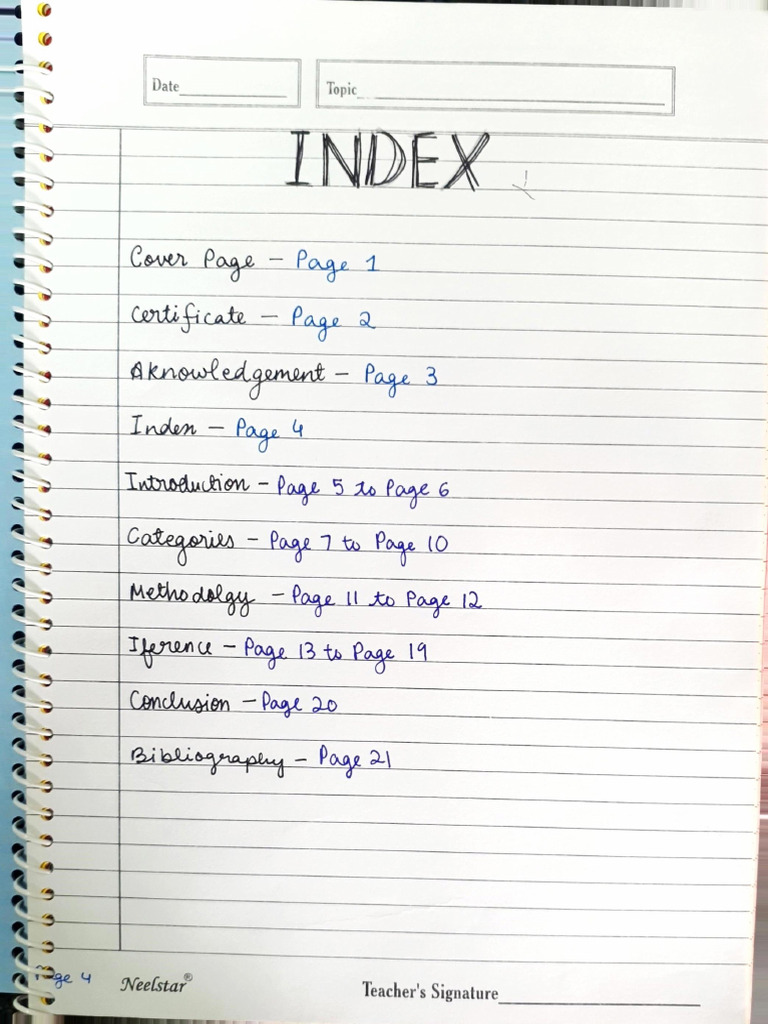 Date
Topic
INDEX
Cover Page - Page 1
Certificate - Page 2
Aknowledgement - Page 3
Index - Page 4
Introduction - Page 5 to Page 6
Categories - Page 7 to Page 10
Methodolgy - Page 11 to Page 12
Iference - Page 13 to Page 19
Conclusion - Page 20
Bibliography - Page 21
Page 4
Neelstar®
Teacher's Signature